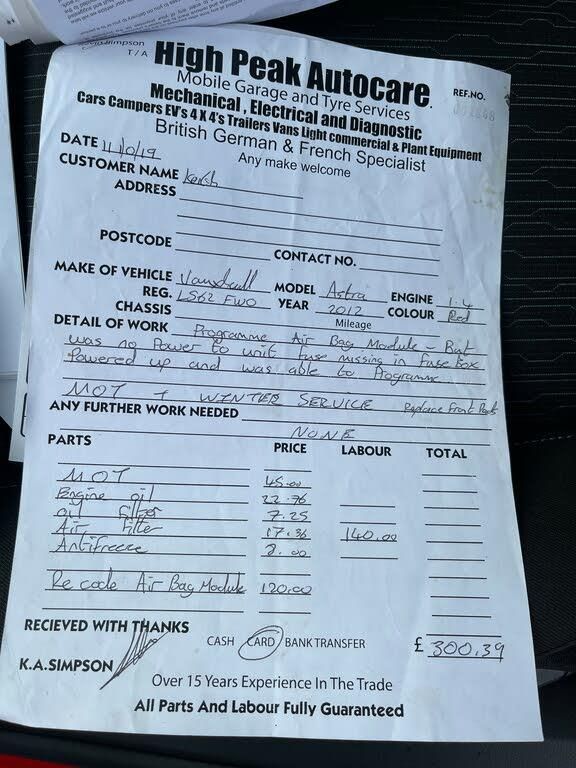 T/A
SIMPSON
High Peak Autocare.
Mobile Garage and Tyre Services
Mechanical, Electrical and Diagnostic
Cars Campers EV's 4 X 4's Trailers Vans Light Commercial & Plant Equipment
British German & French Specialist
Any make welcome
REF.NO.
DATE 11/0/19
CUSTOMER NAME
ADDRESS
POSTCODE CONTACT NO.
MAKE OF VEHICLE Vauxhall MODEL Astra ENGINE 1.4
REG. LS62 FWO YEAR 2012 COLOUR Red
CHASSIS Mileage
DETAIL OF WORK Programme Air Bag Module - But
was no Power to unit fuse missing in fuse box
Powered up and was able to Programme
MOT + WINTER SERVICE Replace Front
ANY FURTHER WORK NEEDED
NONE
PARTS PRICE LABOUR TOTAL
MOT 45.00
Engine oil 22.76
oil filter 7.25
Air filter 17.36 140.00
Antifreeze 8.00
Re code Air Bag Module 120.00
RECIEVED WITH THANKS
CASH CARD BANK TRANSFER £ 300.39
K.A.SIMPSON
Over 15 Years Experience In The Trade
All Parts And Labour Fully Guaranteed